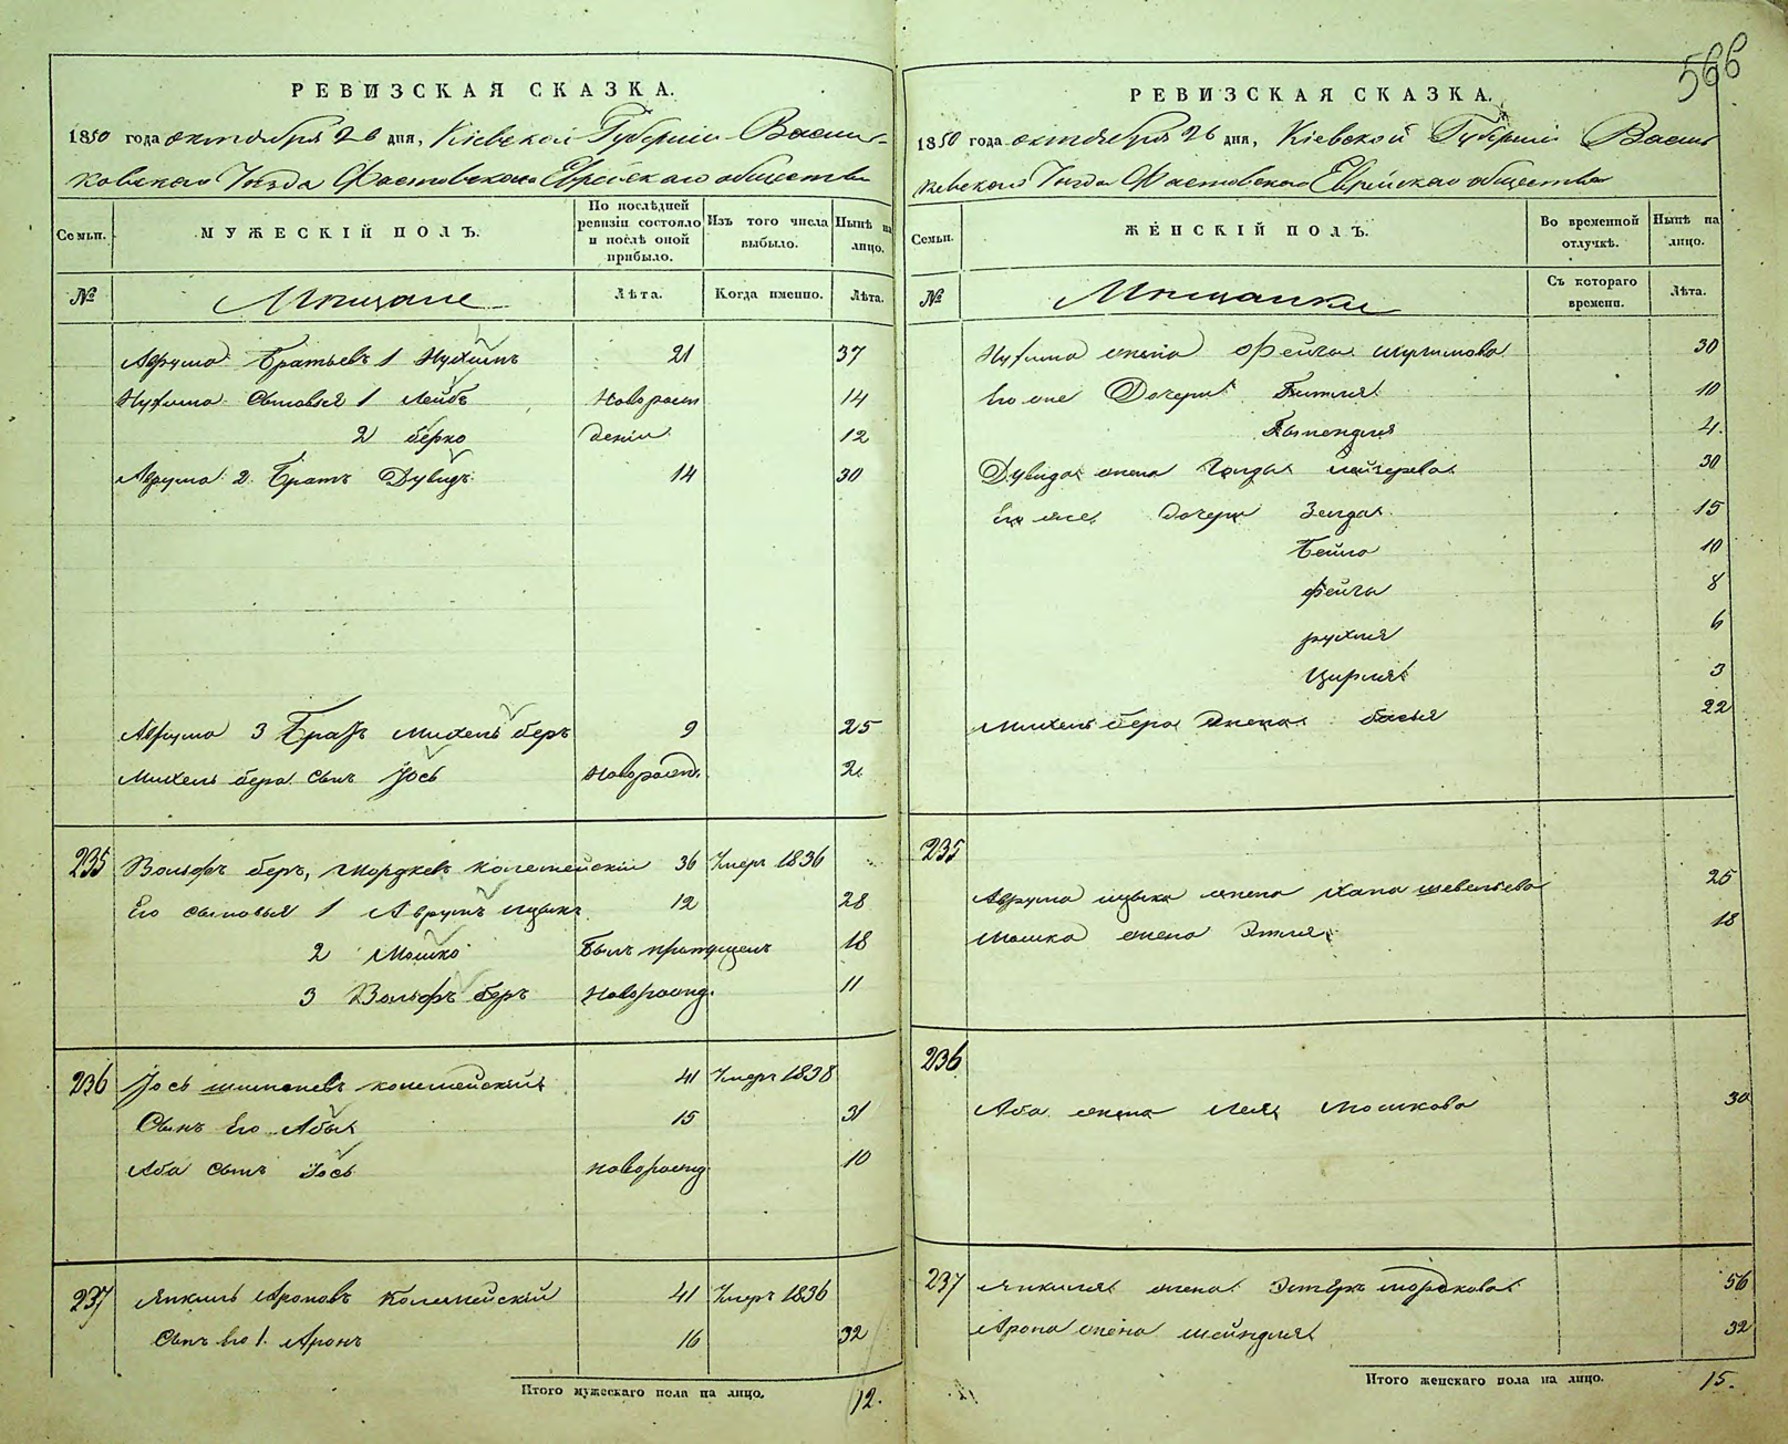 566
РЕВИЗСКАЯ СКАЗКА.
1850 года октября 26 дня, Кіевской Губерніи Васил-
ковскаго Уезда Фастовскаго Еврейскаго общества
Семьи.
МУЖЕСКІЙ ПОЛЪ.
По послѣдней ревизіи состояло и послѣ оной прибыло.
Изъ того числа выбыло.
Нынѣ на лицо.
№
Мещане
Лѣта.
Когда именно.
Лѣта.
Аврума Братьевъ 1 Нухимъ 21 37
Нухима Сыновья 1 Лейбъ Новорож 14
2 берко дении 12
Аврума 2 Братъ Дувидъ 14 30
Аврума 3 Братъ Михель беръ 9 25
Михель бера Сынъ Іось Новорожд. 2
235 Вольфъ беръ, Мордковъ 36 Умеръ 1836
Его сыновья 1 Аврумъ ицыкъ 12 28
2 Мошко Былъ пропущенъ 18
3 Вольфъ беръ Новорожд. 11
236 Іось 41 Умеръ 1838
Сынъ Его Аба 15 31
Аба сынъ Іось новорожд 10
237 Янкель Ароновъ 41 Умеръ 1836
Сынъ его 1. Аронъ 16 32
Итого мужескаго пола на лицо. 12.
РЕВИЗСКАЯ СКАЗКА.
1850 года октября 26 дня, Кіевской Губерніи Васил
ковскаго Уезда Фастовскаго Еврейскаго общества
Семьи.
ЖЕНСКІЙ ПОЛЪ.
Во временной отлучкѣ.
Нынѣ на лицо.
№
Мещанки
Съ котораго времени.
Лѣта.
Нухима жена Фейга 30
Его же Дочери 10
4
Дувида жена Голда лейзерова 30
Его же Дочери Зельда 15
Бейла 10
Фейга 8
рухля 6
Цирля 3
Михель бера Жена басья 22
235
Аврума ицыка жена Хана 25
Мошка жена Этля 18
236
Аба жена Лея Мошкова 30
237 Янкеля жена Эстеръ мордкова 56
Арона жена Шейндля 32
Итого женскаго пола на лицо. 15.